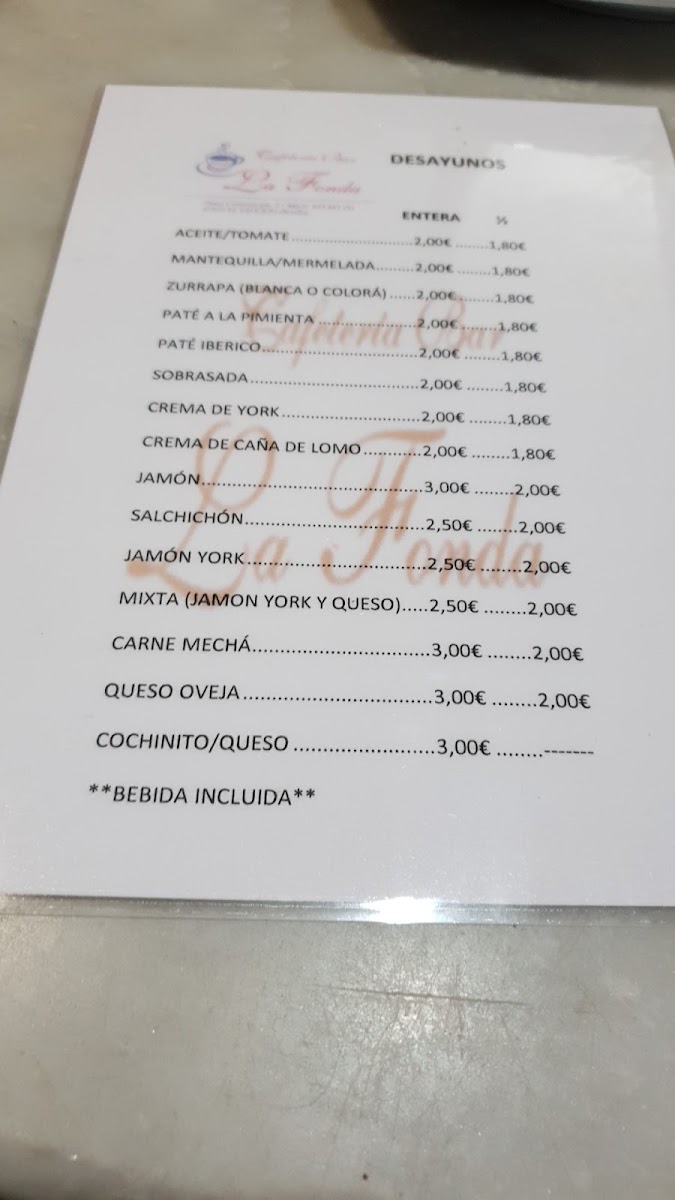 Cafetería Bar
La Fonda
DESAYUNOS
ENTERA ½
ACEITE/TOMATE..............................2,00€ ........1,80€
MANTEQUILLA/MERMELADA.........2,00€ ........1,80€
ZURRAPA (BLANCA O COLORÁ) ......2,00€........1,80€
PATÉ A LA PIMIENTA .......................2,00€ ........1,80€
PATÉ IBERICO....................................2,00€ ........1,80€
SOBRASADA.......................................2,00€ ........1,80€
CREMA DE YORK................................2,00€ ........1,80€
CREMA DE CAÑA DE LOMO............2,00€ ........1,80€
JAMÓN..............................................3,00€ ........2,00€
SALCHICHÓN.....................................2,50€ ........2,00€
JAMÓN YORK.....................................2,50€ ........2,00€
MIXTA (JAMON YORK Y QUESO).....2,50€ ........2,00€
CARNE MECHÁ...................................3,00€ ........2,00€
QUESO OVEJA....................................3,00€ ........2,00€
COCHINITO/QUESO ..........................3,00€ ........-------
**BEBIDA INCLUIDA**
Cafetería Bar
La Fonda